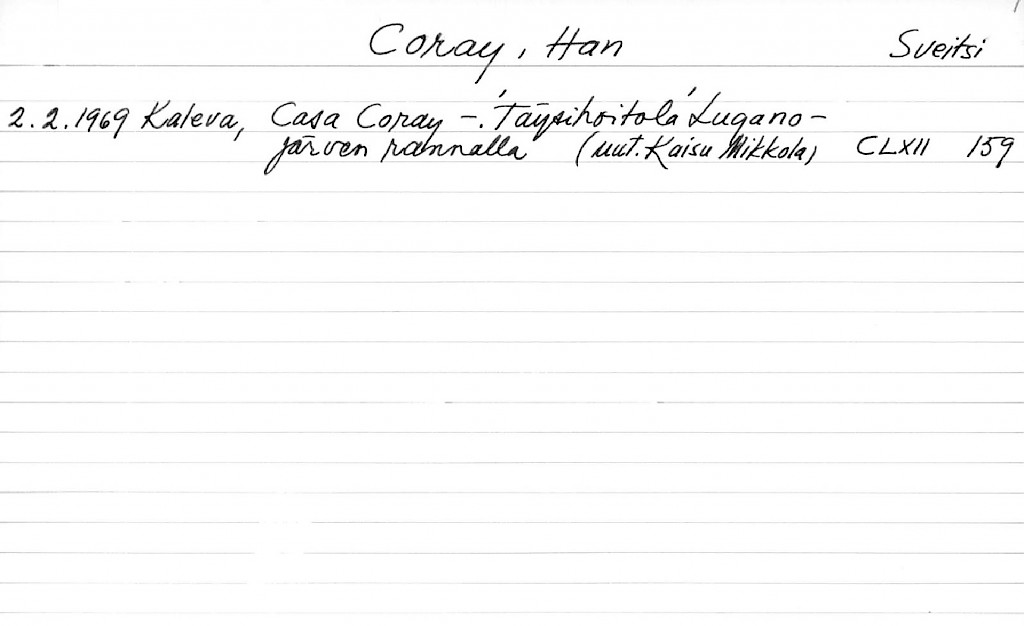 Coray, Han Sveitsi
2.2.1969 Kaleva, Casa Coray -. 'Täysihoitola' Lugano-
järven rannalla (uut. Kaisu Mikkola) CLXII 159